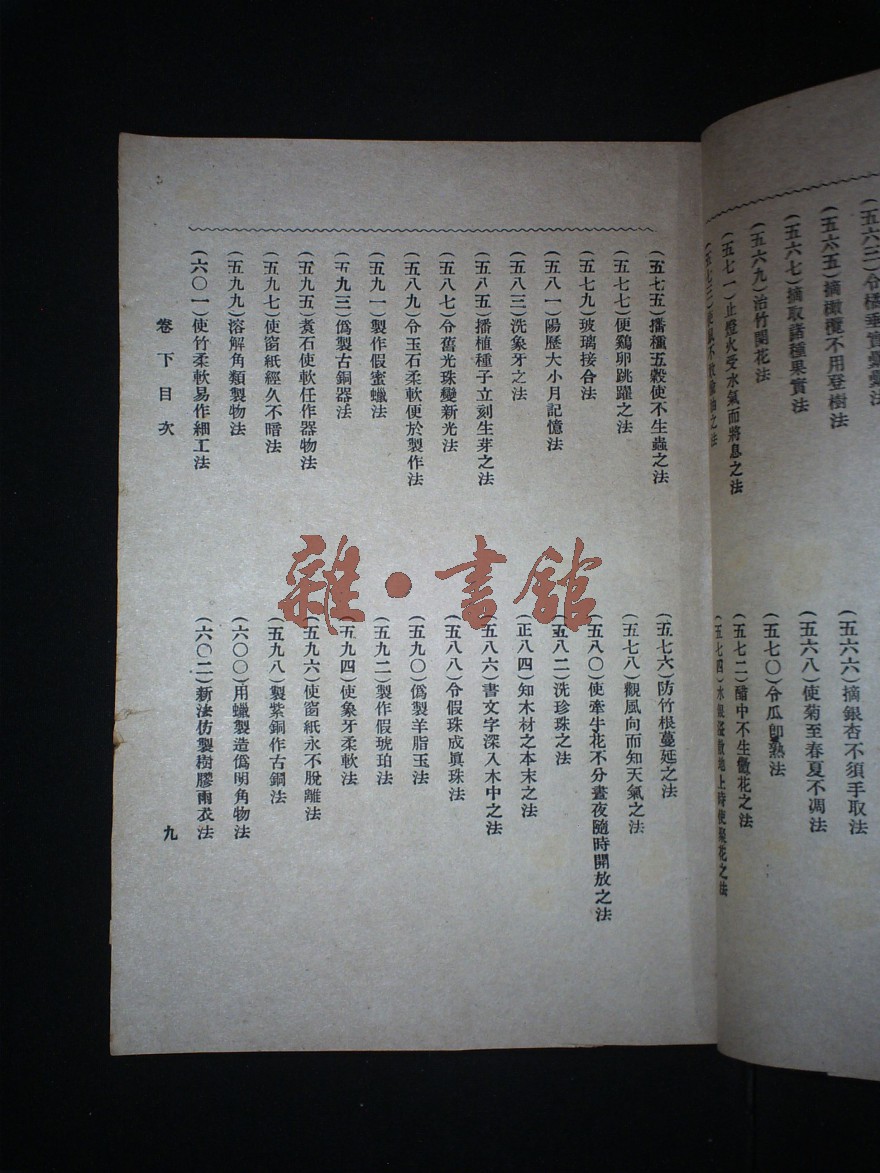 (五六三)令橘垂實纍纍法
(五六五)摘橄欖不用登樹法
(五六七)摘取諸種果實法
(五六九)治竹開花法
(五七一)止燈火受水氣而將息之法
(五六六)摘銀杏不須手取法
(五六八)使菊至春夏不凋法
(五七〇)令瓜卽熟法
(五七二)醋中不生黴花之法
(五七五)播種五穀使不生蟲之法
(五七七)便鷄卵跳躍之法
(五七九)玻璃接合法
(五八一)陽歷大小月記憶法
(五八三)洗象牙之法
(五八五)播植種子立刻生芽之法
(五八七)令舊光珠變新光法
(五八九)令玉石柔軟便於製作法
(五九一)製作假蜜蠟法
(五九三)僞製古銅器法
(五九五)煑石使軟任作器物法
(五九七)使窗紙經久不暗法
(五九九)溶解角類製物法
(六〇一)使竹柔軟易作細工法
(五七六)防竹根蔓延之法
(五七八)觀風向而知天氣之法
(五八〇)使牽牛花不分晝夜隨時開放之法
(五八二)洗珍珠之法
(正八四)知木材之本末之法
(五八六)書文字深入木中之法
(五八八)令假珠成塡珠法
(五九〇)僞製羊脂玉法
(五九二)製作假琥珀法
(五九四)使象牙柔軟法
(五九六)使窗紙永不脫離法
(五九八)製紫銅作古銅法
(六〇〇)用蠟製造僞明角物法
(六〇二)新法仿製樹膠雨衣法
卷下目次
九
雜·書館